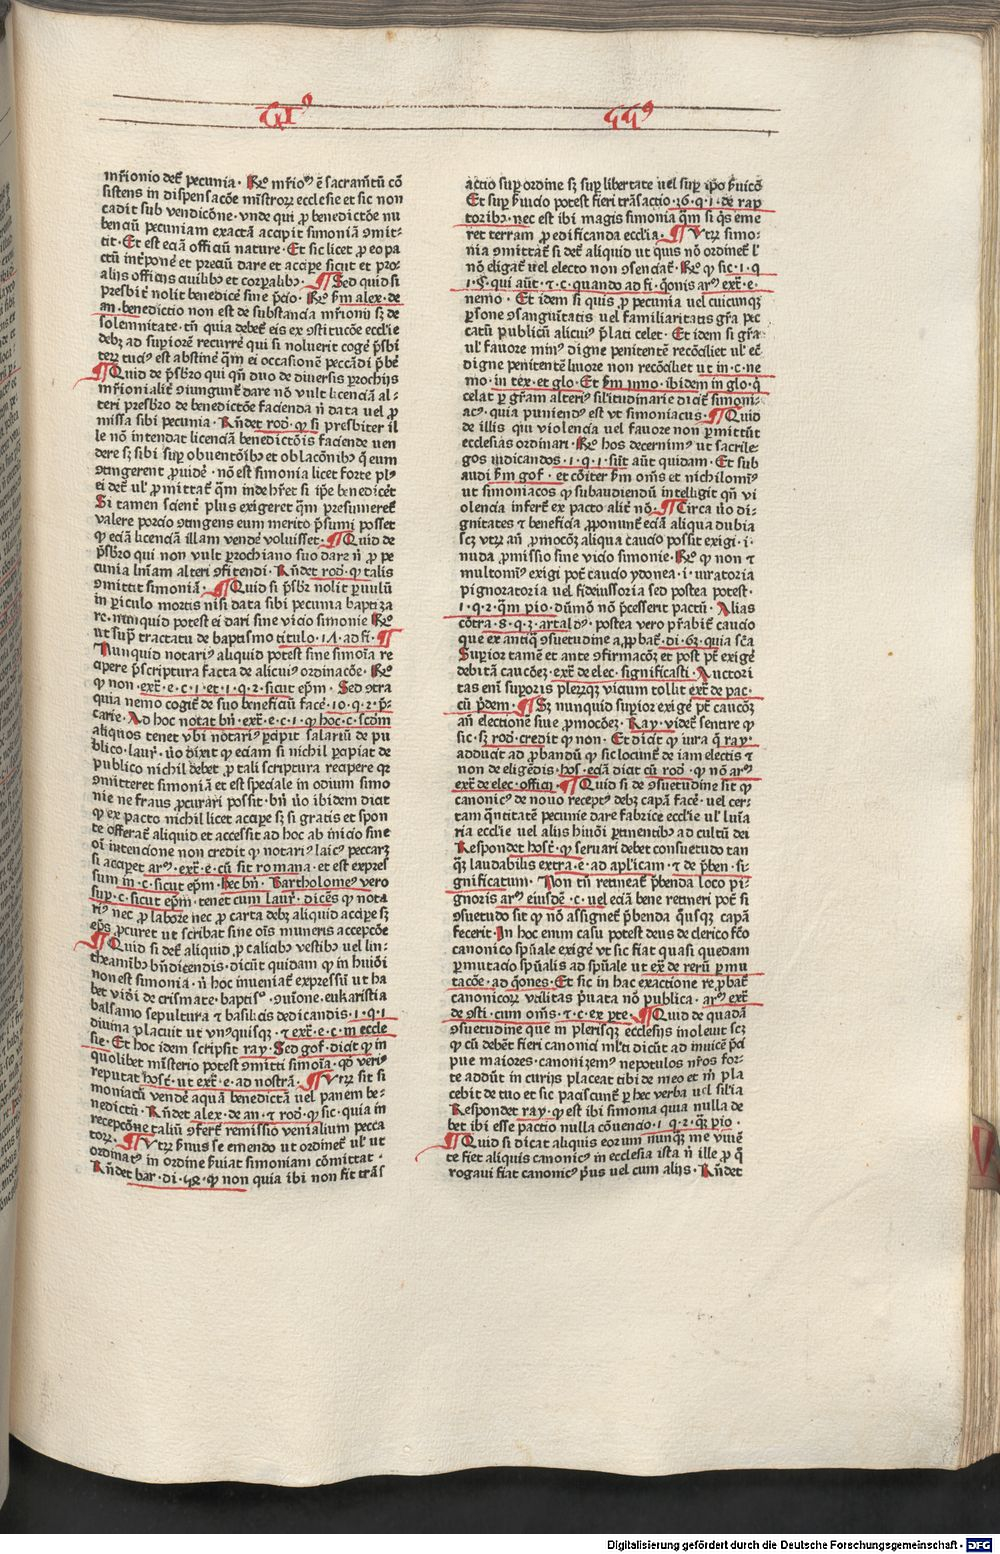 mr̃ionio det̃ pecunia · R̃o mr̃ioᷣ ē sacramt̃ũ cõ
sistens in dispensacõe mĩstrorꝝ ecclesie et sic non
cadit sub vendicõne · vnde qui ꝓ benedictõe nu
benciũ pecuniam exactã accipit simoniã ꝯmit-
tit · Et est eciã officiũ nature · Et sic licet ꝓ eo pa
ctũ int̃ponẽ et preciũ dare et accipe sicut et pro-
alijs officijs ciuilibꝰ et corꝑalibꝰ · ¶ Sed quid si
presbit̃ nolit benedicẽ sine p̃cio · R̃o s̃m alex · de
an · benedictio non est de substancia mr̃ionij sꝫ de
solemnitate · tñ quia debet̃ eis ex ꝯstitucõe eccl̃ie
debꝫ ad suꝑiorẽ recurrẽ qui si noluerit cogẽ p̃sbi
terꝝ tuciꝰ est abstinẽ qm̃ ei occasionẽ peccãdi p̃bẽ
¶ Quid de p̃sbr̃o qui qñ duo de diuersis ꝑrochijs
mr̃ionialit̃ ꝯiungunt̃ dare nõ vult licenciã al-
teri presbr̃o de benedictõe facienda ñ data uel ꝓ
missa sibi pecunia · Rñdet rod̃ · ꝙ si presbiter il
le nõ intendat licenciã benedictõis faciende uen
dere sꝫ sibi suꝑ obuentõibꝰ et oblacõnibꝰ q̃ eum
ꝯtingerent ꝓuidẽ · nõ est simonia licet forte plꝰ
ei det̃ ul̃ ꝓmittat̃ qm̃ inde hr̃et si ip̃e benedicẽt
Si tamen scient̃ plus exigeret qm̃ presumeret̃
valere porcio ꝯtingens eum merito p̃sumi posset
ꝙ eciã licenciã illam vendẽ voluisset · ¶ Quid de
p̃sbr̃o qui non vult ꝑrochiano suo dare ñ ꝓ pe
cunia lnĩam alteri ꝯfitendi · Rñdet rod̃ · ꝙ talis
ꝯmittit simoniã · ¶ Quid si p̃sbr̃ nolit ꝑuulũ
in ꝑiculo mortis nisi data sibi pecunia baptiza
re · nunquid potest ei dari sine vicio simonie R̃o
ut sup̃ tractatu de baptismo titulo · 14 · ad fi · ¶
Nunquid notariꝰ aliquid potest sine simoĩa re
cipere p̃ scriptura facta de alicuiꝰ ordinacõe · R̃o
ꝙ non · ext̃ · e · c · 1 · et · 1 · q · 2 · sicut ep̃m · Sed ꝯtra
quia nemo cogit̃ de suo beneficiũ facẽ · 10 · q · 2 · p̃
carie · Ad hoc notat bñ · ext̃ · e · c · 1 · ꝙ hoc · c · scdm̃
aliquos tenet vbi notariꝰ ꝑcipit salariũ de pu
blico · laur̃ · ũo dixit ꝙ eciam si nichil ꝑcipiat de
publico nichil debet ꝓ tali scriptura recipere qꝛ
ꝯmitteret simoniã et est speciale in odium simo
nie ne fraus ꝓcurari possit · bñ ũo ibidem dicit
ꝙ ex pacto nichil licet accipe sꝫ si gratis et spon
te offerat̃ aliquid et accessit ad hoc ab inicio sine
oĩ intencione non credit ꝙ notariꝰ laicꝰ peccarꝫ
si accipet arᷣ · ext̃ · e · cũ sit romana · et est expres
sum in · c · sicut ep̃m · Hec bñ · Bartholomeꝰ vero
sup · c · sicut ep̃m · tenet cum laur̃ · dicẽs ꝙ nota
riꝰ nec ꝓ labore nec ꝓ carta debꝫ aliquid accipe sꝫ
ep̃s ꝓcuret ut scribat sine oĩs muneris accepcõe
¶ Quid si det̃ aliquid ꝓ calicibꝰ vestibꝰ uel lin-
theamĩbꝰ bñdicendis · dicũt quidam ꝙ in huiꝰi
non est simonia · ñ hoc inueniat̃ expressũ ut ha
bet̃ vidi de crismate · baptisᷣ · ꝯuĩone · eukaristia
balsamo sepultura et basilicis dedicandis · 1 · q · 1
diuina placuit ut vnꝰquisqꝫ · et ext̃ · e · c · in eccle
sie · Et hoc idem scripsit ray · Sed gof̃ · dicit ꝙ in
quolibet mĩsterio potest ꝯmitti simoĩa · qd̃ veriᷣ
reputat host̃ · ut ext̃ · e · ad nostrã · ¶ Vtrꝝ sit si
moniacũ vendẽ aquã benedictã uel panem be-
nedictũ · Rñdet alex · de an · et rod̃ · ꝙ sic · quia in
recepcõne taliũ ꝯfert̃ remissio venialium pecca
torꝝ · ¶ Vtrꝝ ƀmus se emendo ut ordinet̃ ul̃ ut
ordinatꝰ in ordine ƀuiat simoniam cõmittat ·
Rñdet bar · di · 58 · ꝙ non quia ibi non fit trãs
actio suꝑ ordine sꝫ suꝑ libertate uel suꝑ ip̃o ƀuicõ
Et suꝑ ƀuicio potest fieri trãsactio · 36 · q · 1 · de rap
toribꝰ · nec est ibi magis simonia qm̃ si q̃s eme
ret terram ꝓ edificanda eccl̃ia · ¶ Vtrꝝ simo-
nia ꝯmittat̃ si det̃ aliquid ut quis nõ ordinet̃ l̃
nõ eligat̃ uel electo non ꝯsenciat̃ · R̃o ꝙ sic · 1 · q
1 · C̃ · qui aũt · et · c · quando ad fi · q̃onis arᷣ · ext̃ · e ·
nemo · Et idem si quis ꝓ pecunia uel cuicunqꝫ
ꝑsone ꝯsanguĩtatis uel familiaritatis gr̃a pec
catũ publicũ alicuiꝰ p̃lati celet · Et idem si gr̃a
ul̃ fauore minꝰ digne penitentẽ recõciliet ul̃ ec̃
digne penitentẽ liuore non recõciliet ut in · c · ne
mo · in tex · et glo · Et s̃m ĩmo · ibidem in glo · q̃
celat ꝑ gr̃am alteriꝰ sil̃itudinarie dicit̃ simoni-
acꝰ · quia puniendꝰ est vt simoniacus · ¶ Quid
de illis qui violencia uel fauore non ꝑmittũt
ecclesias ordinari · R̃o hos decernimꝰ ut sacrile-
gos iudicandos · 1 · q · 1 · sũt aũt quidam · Et sub
audi s̃m gof̃ · et cõiter s̃m om̃s et nichilomĩꝰ
ut simoniacos ꝙ subaudiendũ intelligit qñ vi
olencia infert̃ ex pacto alit̃ nõ · ¶ Circa ũo di-
gnitates et beneficia ꝓponunt̃ eciã aliqua dubia
scꝫ vtrꝝ añ ꝓmocõꝫ aliqua caucio possit exigi · i ·
nuda ꝓmissio sine vicio simonie · R̃o ꝙ non et
multominꝰ exigi pot̃ caucio ydonea · i · iuratoria
pignoratoria uel fideiussoria sed postea potest ·
1 · q · 2 · qm̃ pio · dũmõ nõ p̃cesserit pactũ · Alias
cõtra · 8 · q · 3 · artaldꝰ · postea vero p̃rabit̃ caucio
que ex antiq̃ ꝯsuetudine aꝓbat̃ · di · 63 · quia sc̃a
Suꝑior tamẽ et ante ꝯfirmacõꝫ et post pt̃ exigẽ
debitã caucõeꝫ · ext̃ de elec · significasti · Auctori
tas eni suꝑoris plerꝫqꝫ vicium tollit ext̃ de pac ·
cũ p̃dem · ¶ Sꝫ nunquid suꝑior exigẽ pt̃ caucõꝫ
añ electionẽ siue ꝓmocõeꝫ · Ray · videt̃ sentire ꝙ
sic · sꝫ rod̃ · credit ꝙ non · Et dicit ꝙ iura q̃ ray ·
adducit ad ꝓbandũ ꝙ sic locunt̃ de iam electis et
non de eligẽdis · hos̃ · eciã dicit cũ rod̃ · ꝙ nõ arᷣ
ext̃ de elec · officij · ¶ Quid si de ꝯsuetudine sit ꝙ
canonicꝰ de nouo receptꝰ debꝫ capã facẽ · uel cer-
tam q̃ntitatẽ pecunie dare fabrice eccl̃ie ul̃ luĩa
ria eccl̃ie uel alijs hiuiꝰi ꝑtinentibꝰ ad cultũ dei
Respondet host̃ · ꝙ seruari debet consuetudo tan
q̃ꝫ laudabilis extra · e · ad apl̃icam · et de p̃ben · si-
gnificatum · Non tñ retineat̃ p̃benda loco pi-
gnoris arᷣ eiusdẽ · c · uel eciã bene retineri pot̃ si
ꝯsuetudo sit ꝙ nõ assignet̃ p̃benda q̃usqꝫ capã
fecerit · In hoc enim casu potest deus de clerico fc̃o
canonico spũale exigẽ vt sic fiat quasi quedam
ꝑmutacio spũalis ad spũale ut ex̃ de rerũ ꝑmu
tacõe · ad q̃ones · Et sic in hac exactione reꝓbat̃
canonicorꝝ vtilitas p̃uata nõ publica · arᷣ ext̃
de ꝯsti · cum om̃s · et · c · ex ꝑte · ¶ Quid de quadã
ꝯsuetudine que in plerisqꝫ ecclesijs inoleuit scꝫ
ꝙ cũ debẽt fieri canonici ml̃ti dicũt ad inuicẽ p̃ci
pue maiores · canonizemꝰ nepotulos nr̃os for-
te addũt in curijs placeat tibi de meo et m̃ pla
cebit de tuo et sic paciscunt̃ ꝑ hec verba uel sil̃ia
Respondet ray · ꝙ est ibi simonia quia nulla de
bet ibi esse pactio nulla cõuencio · 1 · q · 2 · qꝛ̃ pio ·
¶ Quid si dicat aliquis eorum nunqꝫ me viuẽ
te fiet aliquis canonicꝰ in ecclesia ista ñ ille ꝓ q̃
rogaui fiat canonicꝰ p̃us uel cum alijs · Rñdet
Digitalisierung gefördert durch die Deutsche Forschungsgemeinschaft - DFG